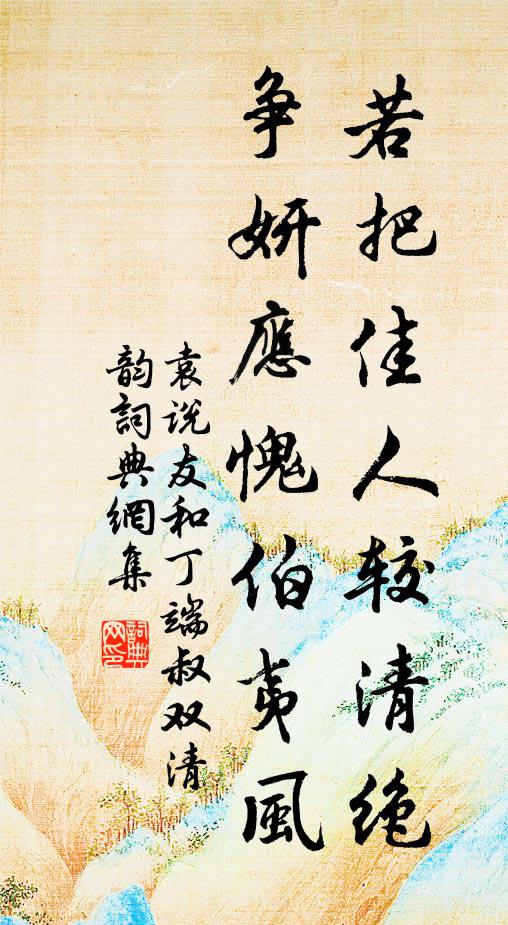 若把佳人较清绝
争妍應愧伯夷風
袁说友和丁端叔双清
韵詞典網集
詞典
网印